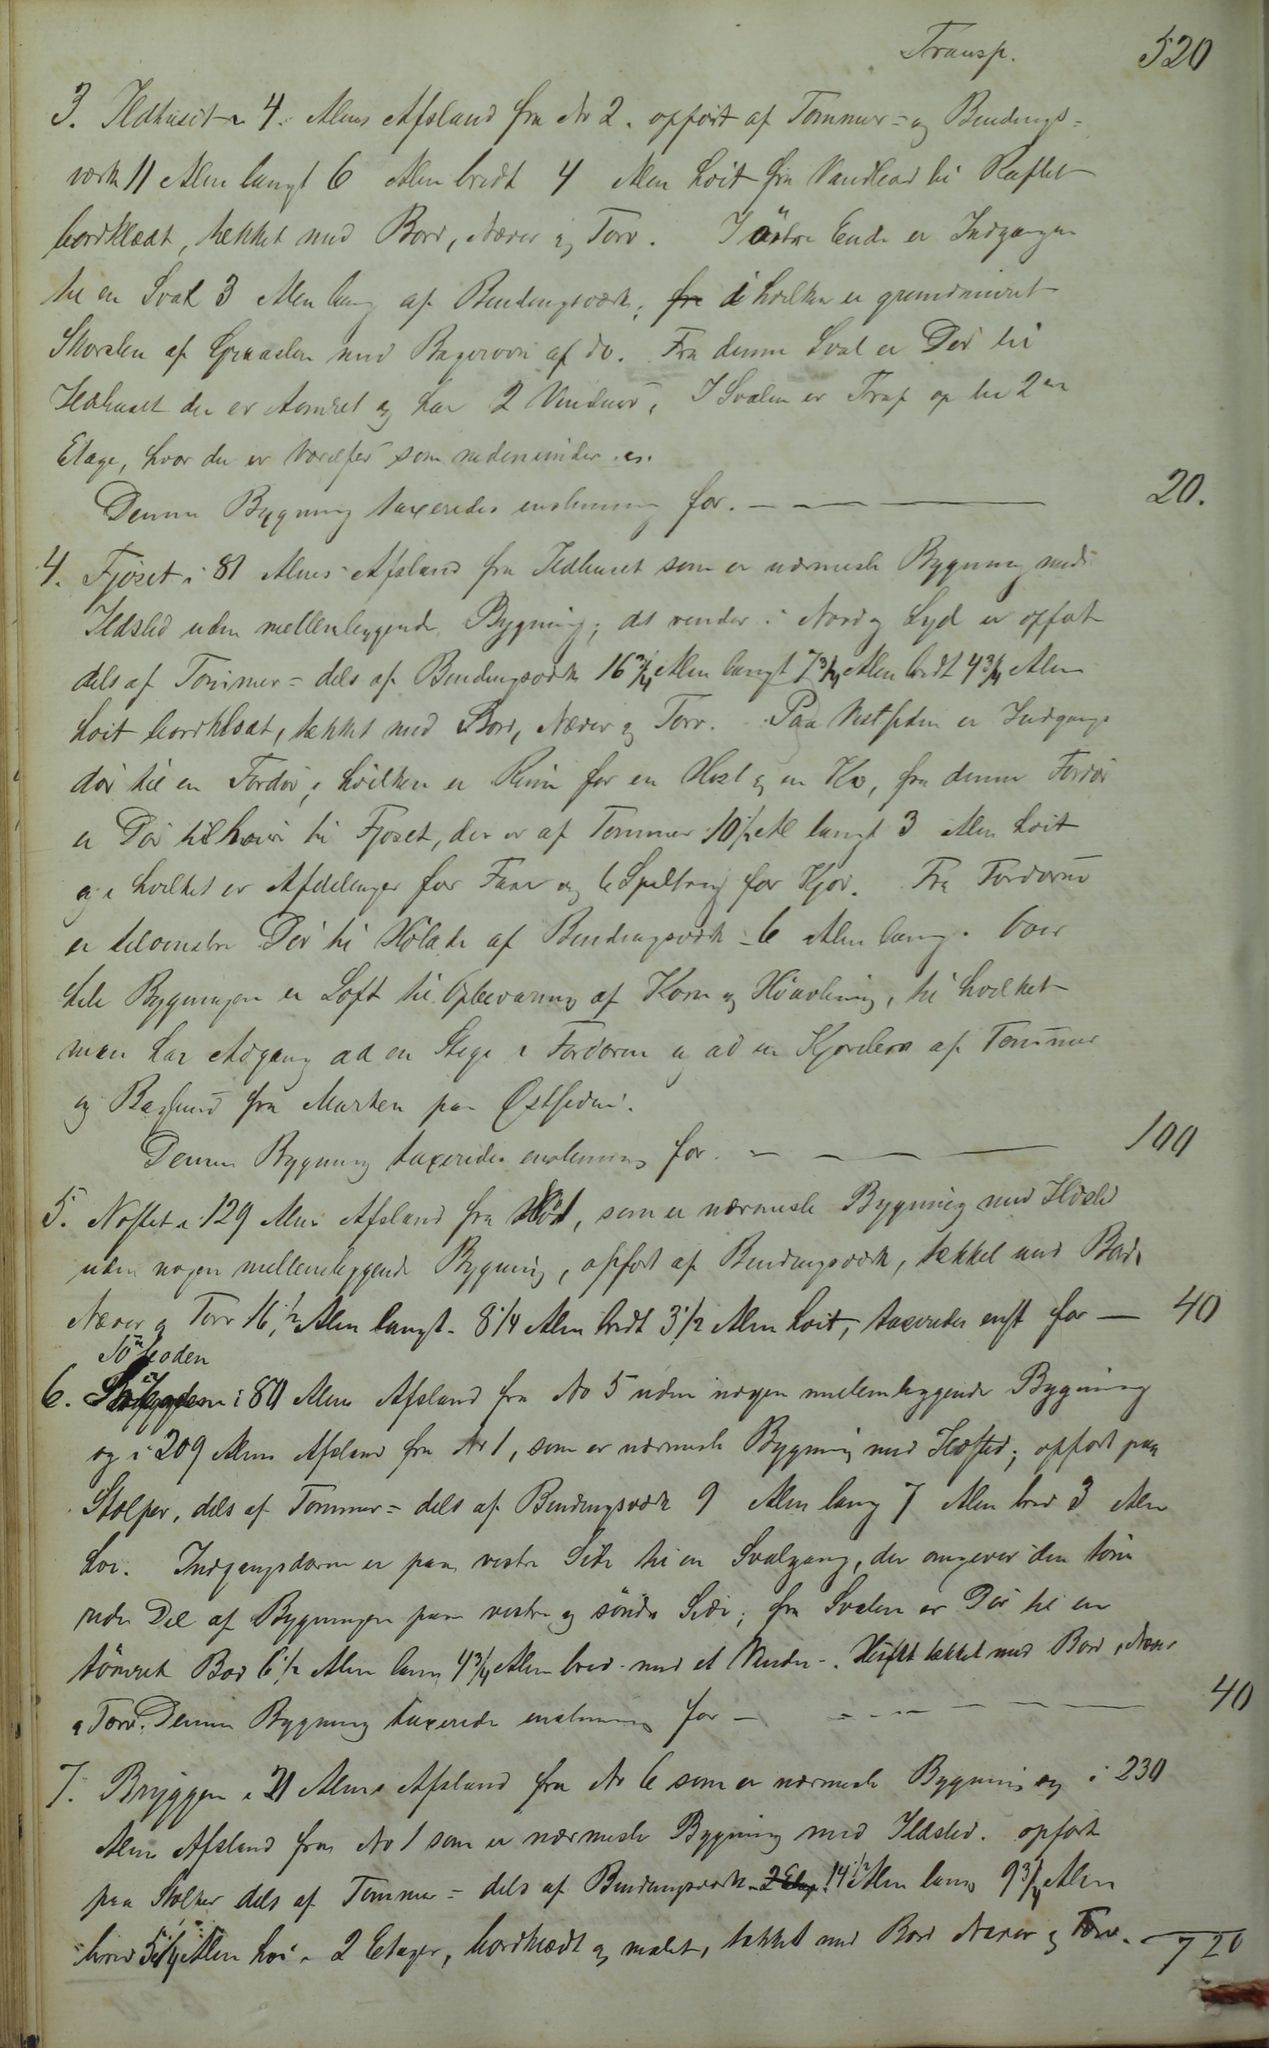 Transp. 520
3. Ildhuset i 4. Alens Afstand fra No 2. opført af Tømmer- og Bindings-
værk 11 Alen langt 6 Alen bredt 4 Alen høit fra Vandbord til Raftet
bordklædt, tækket med Bord, Næver og Torv. I østre Ende er Indgangen
til en Sval 3 Alen lang af Bindingsværk, i hvilken er grundmuret
Skorsten af Graasten med Bagerovn af do. Fra denne Sval er Dør til
Ildhuset der er tømret og har 2 Vinduer. I Svalen er Trap op til 2den
Etage, hvor der er Værelser som nedenunder.
Denne Bygning taxeredes enstemmig for. — — — 20.
4. Fjøset i 81 Alens Afstand fra Ildhuset som er nærmeste Bygning med
Ildsted uden mellemliggende Bygning; det vender i Nord og Syd er opført
dels af Tømmer- dels af Bindingsværk 16 3/4 Alen langt 7 3/4 Alen bredt 4 3/4 Alen
høit bordklædt, tækket med Bord, Næver og Torv. Paa Vestsiden er Indgangs
dør til en Fordør, i hvilken er Rum for en Hest og en Ko, fra denne Fordør
er Dør tilhøire til Fjøset, der er af Tømmer 10 1/2 Al langt 3 Alen høit
og i hvilket er Afdelinger for Faar og 6 Spiltoug for Kjør. Fra Fordøren
er tilvenstre Dør til Hølade af Bindingsværk 6 Alen lang. Over
hele Bygningen er Loft til Opbevaring af Korn og Høavling, til hvilket
man har Adgang ad en Stige i Fordøren og ad en Kjørebro af Tømmer
og fra Marken paa Østsiden.
Denne Bygning taxeredes enstemmig for. — — — 100
5. Nøstet i 129 Alens Afstand fra No 1, som er nærmeste Bygning med Ildsted
uden nogen mellemliggende Bygning, opført af Bindingsværk, tækket med Bord,
Næver og Torv 16 1/2 Alen langt. 8 1/4 Alen bredt 3 1/2 Alen høit, taxeredes enst for — 40
Søboden
6. i 80 Alens Afstand fra No 5 uden nogen mellemliggende Bygning
og i 209 Alens Afstand fra No 1, som er nærmeste Bygning med Ildsted; opført paa
Stolper, dels af Tømmer- dels af Bindingsværk 9 Alen lang 7 Alen bred 3 Alen
høi. Indgangsdøren er paa vestre Side til en Svalgang, der omgiver den tøm
rede Del af Bygningen paa vestre og søndre Side; fra Svalen er Dør til en
tømret Bod 6 1/2 Alen lang 4 3/4 Alen bred med et Vindu. tækket med Bord, Næver
og Torv. Denne Bygning taxeredes enstemmig for — — — 40
7. Bryggen i 21 Alens Afstand fra No 6 som er nærmeste Bygning og i 230
Alens Afstand fra No 1 som er nærmeste Bygning med Ildsted. opført
paa Stolper dels af Tømmer- dels af Bindingsværk 2 Etag. 14 1/2 Alen lang 9 3/4 Alen
bred Alen høi i 2 Etager, bordklædt og malet, tækket med Bord Næver og Torv. —
720